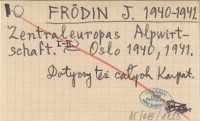 FRÖDIN J. 1940-1941.
Zentraleuropas Alpwirt-
schaft. I-II Oslo 1940, 1941.
Dotyczy też całych Karpat.